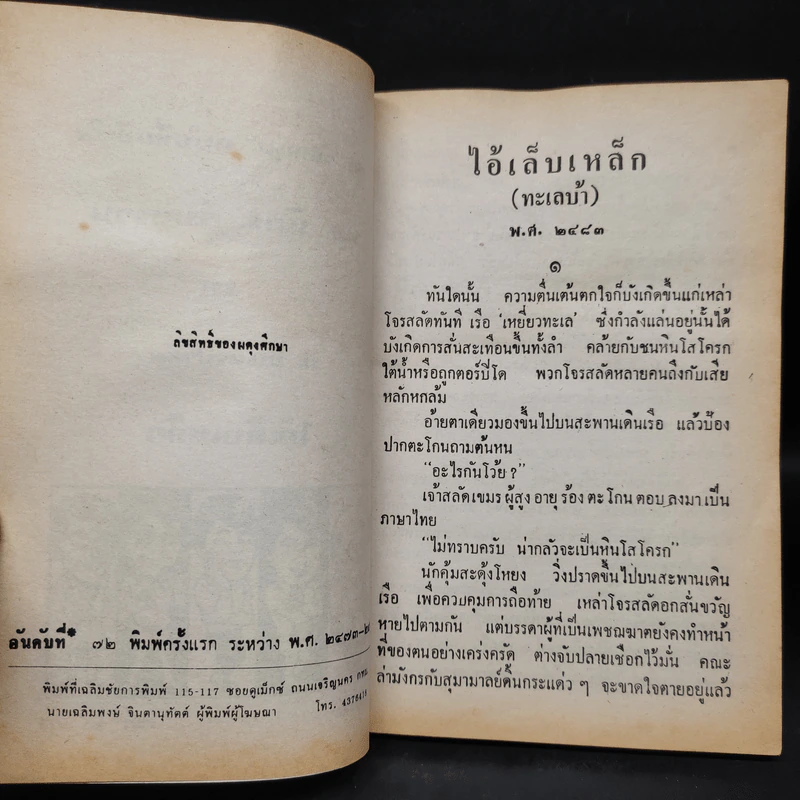 ลิขสิทธิ์ของผดุงศึกษา
อันดับที่ ๗๒ พิมพ์ครั้งแรก ระหว่าง พ.ศ. ๒๔๗๓-๒
พิมพ์ที่เฉลิมชัยการพิมพ์ 115-117 ซอยดูเม็กซ์ ถนนเจริญนคร กทม.
นายเฉลิมพงษ์ จินตานุทัตต์ ผู้พิมพ์ผู้โฆษณา โทร.
ไอ้เล็บเหล็ก
(ทะเลบ้า)
พ.ศ. ๒๔๘๓
๑
ทันใดนั้น ความตื่นเต้นตกใจก็บังเกิดขึ้นแก่เหล่า
โจรสลัดทันที เรือ 'เหยี่ยวทะเล' ซึ่งกำลังแล่นอยู่นั้นได้
บังเกิดการสั่นสะเทือนขึ้นทั้งลำ คล้ายกับชนหินโสโครก
ใต้น้ำหรือถูกตอร์ปิโด พวกโจรสลัดหลายคนถึงกับเสีย
หลักหกล้ม
อ้ายตาเดียวมองขึ้นไปบนสะพานเดินเรือ แล้วป้อง
ปากตะโกนถามต้นหน
"อะไรกันโว้ย ?"
เจ้าสลัดเขมร ผู้สูง อายุ ร้อง ตะ โกน ตอบ ลงมา เป็น
ภาษาไทย
"ไม่ทราบครับ น่ากลัวจะเป็นหินโสโครก"
นักคุ้มสะดุ้งโหยง วิ่งปราดขึ้นไปบนสะพานเดิน
เรือ เพื่อควบคุมการถือท้าย เหล่าโจรสลัดอกสั่นขวัญ
หายไปตามกัน แต่บรรดาผู้ที่เป็นเพชฌฆาตยังคงทำหน้า
ที่ของตนอย่างเคร่งครัด ต่างจับปลายเชือกไว้มั่น คณะ
ล่ามังกรกับสุมามาลย์ดิ้นกระแด่ว ๆ จะขาดใจตายอยู่แล้ว